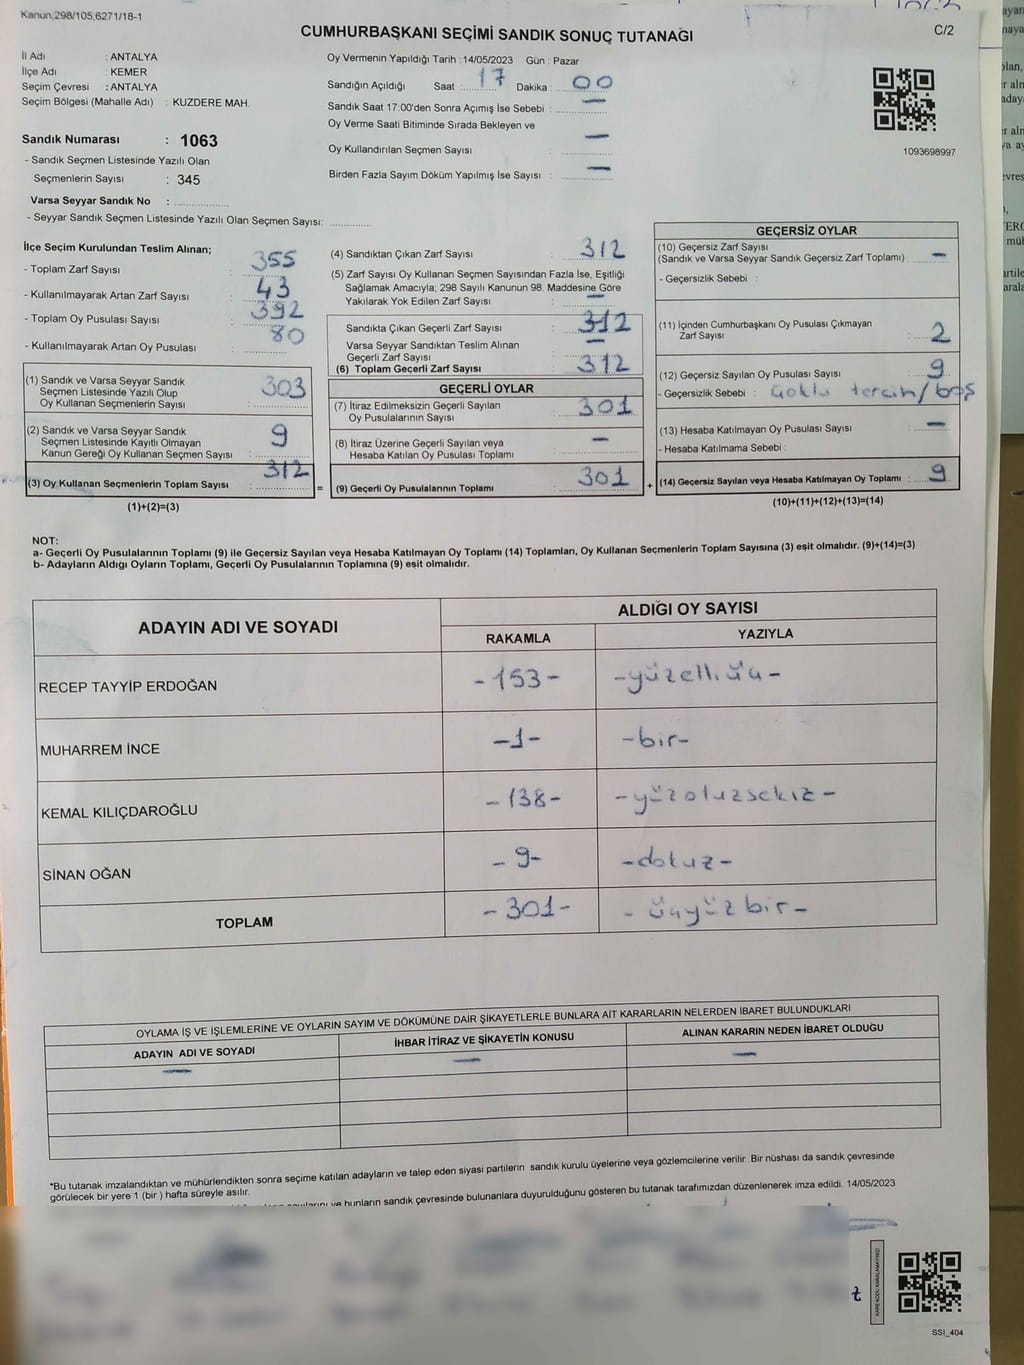 Kanun;298/105;6271/18-1
CUMHURBAŞKANI SEÇİMİ SANDIK SONUÇ TUTANAĞI
C/2
İl Adı : ANTALYA
İlçe Adı : KEMER
Seçim Çevresi : ANTALYA
Seçim Bölgesi (Mahalle Adı) : KUZDERE MAH.
Sandık Numarası : 1063
- Sandık Seçmen Listesinde Yazılı Olan
Seçmenlerin Sayısı : 345
Varsa Seyyar Sandık No : ..............
- Seyyar Sandık Seçmen Listesinde Yazılı Olan Seçmen Sayısı: ..............
Oy Vermenin Yapıldığı Tarih : 14/05/2023 Gün : Pazar
Sandığın Açıldığı Saat : 17 Dakika : 00
Sandık Saat 17:00'den Sonra Açımış İse Sebebi : —
Oy Verme Saati Bitiminde Sırada Bekleyen ve
Oy Kullandırılan Seçmen Sayısı : —
Birden Fazla Sayım Döküm Yapılmış İse Sayısı : —
1093698997
İlçe Seçim Kurulundan Teslim Alınan;
- Toplam Zarf Sayısı : 355
- Kullanılmayarak Artan Zarf Sayısı : 43
- Toplam Oy Pusulası Sayısı : 392
- Kullanılmayarak Artan Oy Pusulası : 80
(1) Sandık ve Varsa Seyyar Sandık
Seçmen Listesinde Yazılı Olup
Oy Kullanan Seçmenlerin Sayısı : 303
(2) Sandık ve Varsa Seyyar Sandık
Seçmen Listesinde Kayıtlı Olmayan
Kanun Gereği Oy Kullanan Seçmen Sayısı : 9
(3) Oy Kullanan Seçmenlerin Toplam Sayısı : 312
(1)+(2)=(3)
(4) Sandıktan Çıkan Zarf Sayısı : 312
(5) Zarf Sayısı Oy Kullanan Seçmen Sayısından Fazla İse, Eşitliği
Sağlamak Amacıyla; 298 Sayılı Kanunun 98. Maddesine Göre
Yakılarak Yok Edilen Zarf Sayısı : —
Sandıkta Çıkan Geçerli Zarf Sayısı : 312
Varsa Seyyar Sandıktan Teslim Alınan
Geçerli Zarf Sayısı : —
(6) Toplam Geçerli Zarf Sayısı : 312
GEÇERLİ OYLAR
(7) İtiraz Edilmeksizin Geçerli Sayılan
Oy Pusulalarının Sayısı : 301
(8) İtiraz Üzerine Geçerli Sayılan veya
Hesaba Katılan Oy Pusulası Toplamı : —
= (9) Geçerli Oy Pusulalarının Toplamı : 301
GEÇERSİZ OYLAR
(10) Geçersiz Zarf Sayısı
(Sandık ve Varsa Seyyar Sandık Geçersiz Zarf Toplamı) : —
- Geçersizlik Sebebi :
(11) İçinden Cumhurbaşkanı Oy Pusulası Çıkmayan
Zarf Sayısı : 2
(12) Geçersiz Sayılan Oy Pusulası Sayısı : 9
- Geçersizlik Sebebi : Çoklu tercih/boş
(13) Hesaba Katılmayan Oy Pusulası Sayısı : —
- Hesaba Katılmama Sebebi :
+ (14) Geçersiz Sayılan veya Hesaba Katılmayan Oy Toplamı : 9
(10)+(11)+(12)+(13)=(14)
NOT:
a- Geçerli Oy Pusulalarının Toplamı (9) ile Geçersiz Sayılan veya Hesaba Katılmayan Oy Toplamı (14) Toplamları, Oy Kullanan Seçmenlerin Toplam Sayısına (3) eşit olmalıdır. (9)+(14)=(3)
b- Adayların Aldığı Oyların Toplamı, Geçerli Oy Pusulalarının Toplamına (9) eşit olmalıdır.
ADAYIN ADI VE SOYADI
ALDIĞI OY SAYISI
RAKAMLA YAZIYLA
RECEP TAYYİP ERDOĞAN -153- -yüzelliüç-
MUHARREM İNCE -1- -bir-
KEMAL KILIÇDAROĞLU -138- -yüzotuzsekiz-
SİNAN OĞAN -9- -dokuz-
TOPLAM -301- -üçyüzbir-
OYLAMA İŞ VE İŞLEMLERİNE VE OYLARIN SAYIM VE DÖKÜMÜNE DAİR ŞİKAYETLERLE BUNLARA AİT KARARLARIN NELERDEN İBARET BULUNDUKLARI
ADAYIN ADI VE SOYADI İHBAR İTİRAZ VE ŞİKAYETİN KONUSU ALINAN KARARIN NEDEN İBARET OLDUĞU
— — —
*Bu tutanak imzalandıktan ve mühürlendikten sonra seçime katılan adayların ve talep eden siyasi partilerin sandık kurulu üyelerine veya gözlemcilerine verilir. Bir nüshası da sandık çevresinde
görülecek bir yere 1 (bir ) hafta süreyle asılır.
ve bunların sandık çevresinde bulunanlara duyurulduğunu gösteren bu tutanak tarafımızdan düzenlenerek imza edildi. 14/05/2023
SSI_404